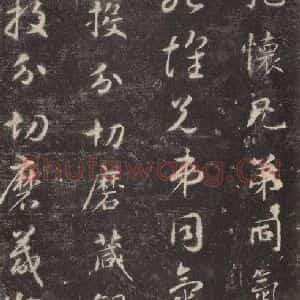 懷兄弟同氣
懷兄弟同氣
投分切磨箴
投分切磨箴
Shufawang.Cn